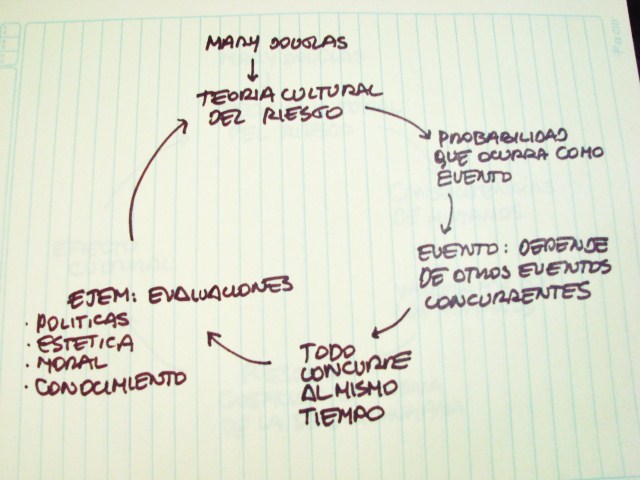 MARY DOUGLAS
TEORIA CULTURAL
DEL RIESGO
PROBABILIDAD
QUE OCURRA COMO
EVENTO
EVENTO: DEPENDE
DE OTROS EVENTOS
CONCURRENTES
TODO
CONCURRE
AL MISMO
TIEMPO
EJEM: EVALUACIONES
· POLITICAS
· ESTETICA
· MORAL
· CONOCIMIENTO